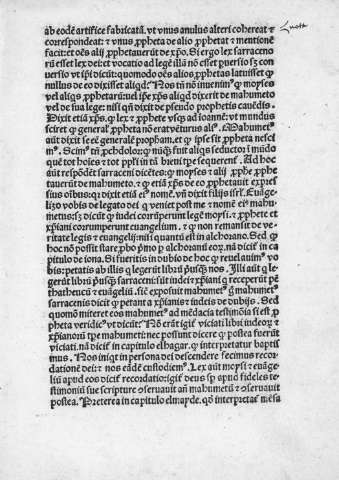 ab eodē artifice fabricatā. vt vnus anulus alteri cohereat ⁊
correspondeat: ⁊ vnus ꝓpheta de alio ꝓphetat ⁊ mentionē
faciet: et oēs alij ꝓphetauerūt de xp̄o. Si ergo lex sarraceno
rū esset lex dei: et vocatio ad legē illā nō esset ꝑuersio sꝫ con
uersio vt ip̄i dicūt: quomodo oēs alios ꝓphetas latuisset qͥ
nullus de eo dixisset aliqd̓. Nos tn̄ nō inuenim̓ ꝙ moyses
vel aliqs ꝓphetarū: vel ip̄e xp̄s aliqd dixerit de mahumeto
vel de sua lege: nisi qn̄ dixit de pseudo prophetis cauēdis.
Dixit etiā xp̄s. ꝙ lex ⁊ ꝓphete vsqꝫ ad ioannē: vt mundus
sciret ꝙ general̓ ꝓpheta nō erat vēturus aliꝰ. Mahumetꝰ
aūt dixit se eē generalē propham. et ꝙ ipse sit ꝓpheta nesci
m̓. Scim̓ tn̄ ꝓch dolor: ꝙ nūqꝫ fuit aliqs seductor ī mūdo
quē tot hoies ⁊ tot ppl̓i in tā breui tꝑe sequerent̓. Ad hoc
aūt respōdēt sarraceni dicētes: ꝙ moyses ⁊ alij ꝓphe ꝓphe
tauerūt de mahumeto. ⁊ ꝙ etiā xp̄s de eo ꝓphetauit expres
sius oībus: qꝛ dixit etiā eiꝰ nomē. vn̄ dixit filijs isrl̓. Euāge
lizo vobis de legato dei qͥ veniet post me ⁊ nomē eiꝰ mahu
metus: sꝫ dicūt ꝙ iudei corrūperunt legē moysi. ⁊ ꝓphete et
xp̄iani corrumperunt euangelium. ⁊ ꝙ non remansit de ve
ritate legis ⁊ euangelij: nisi quantū est in alchorano. Sed ꝙ
hoc nō possit stare ꝓbo ꝑ alchoranū eoꝝ. nā dicit̓ in capi
tulo de iona. Si fueritis in dubio de hoc qͥ reuelauim̓ vo
bis: petatis ab illis qͥ legerūt librū pͥusqꝫ nos. Illi aūt qͥ le
gerūt librū pͥusqꝫ sarraceni: sūt iudei ⁊ xp̄iani qͥ receperūt pē
thatheucū ⁊ euāgeliū. sic̄ exposuit mahumetꝰ qͥ mahumetꝰ
sarracenis dicit ꝙ petant a xp̄ianis ⁊ iudeis de dubijs. Sed
quomō miteret eos mahumetꝰ ad mēdacia testimōia si est ꝓ
pheta veridicꝰ vt dicūt. Nō erāt igit̓ viciati libri iudeoꝝ ⁊
xp̄ianorū tꝑe mahumeti: nec possunt dicere ꝙ postea fuerūt
viciati. nā dicit̓ in capitulo elhagar. ꝙ interpretatur boptis
mus. Nos iniqͥt in persona dei descendere fecimus recor
dationē dei: ⁊ nos eadē custodiem̓. Lex aūt moysi ⁊ euagē
liū apud eos dicit̓ recordatio: igit̓ deus sꝑ apud fideles te
stimoniū sue scripture ⁊seruauit an̄ mahumetū ⁊ ⁊seruauit
postea. Preterea in capitulo elmayde. qd̓ interpretat̓ mēsa